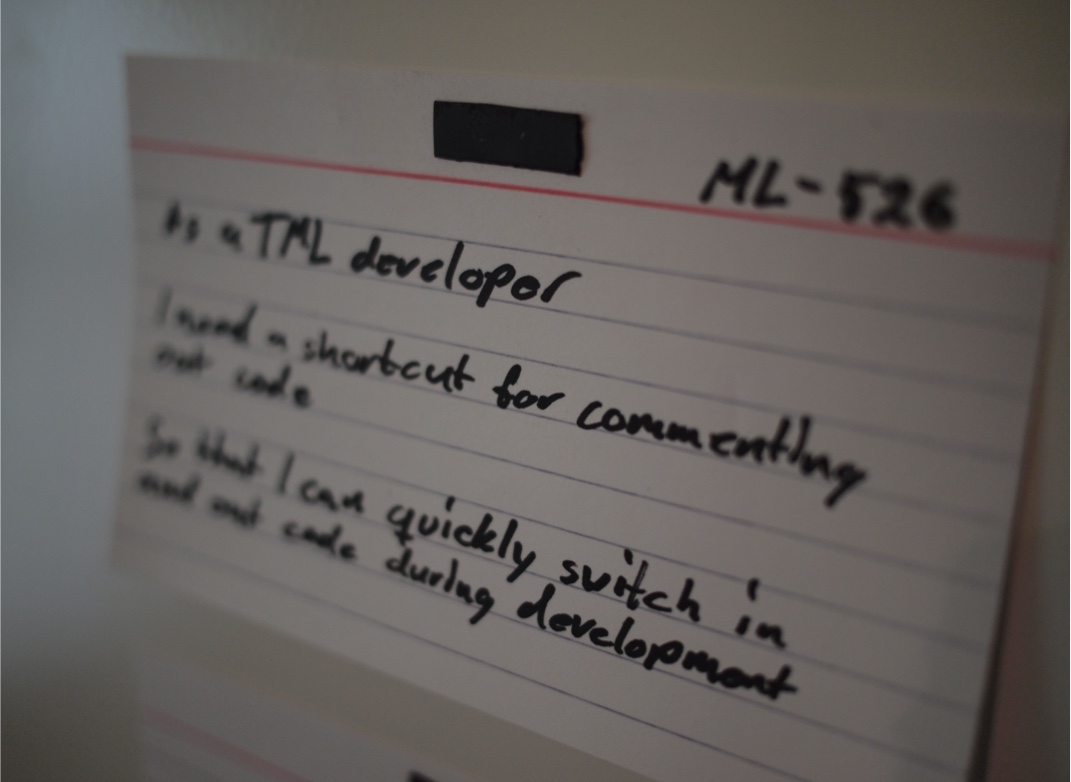 ML-526
As a TML developer
I need a shortcut for commenting
out code
So that I can quickly switch in
and out code during development